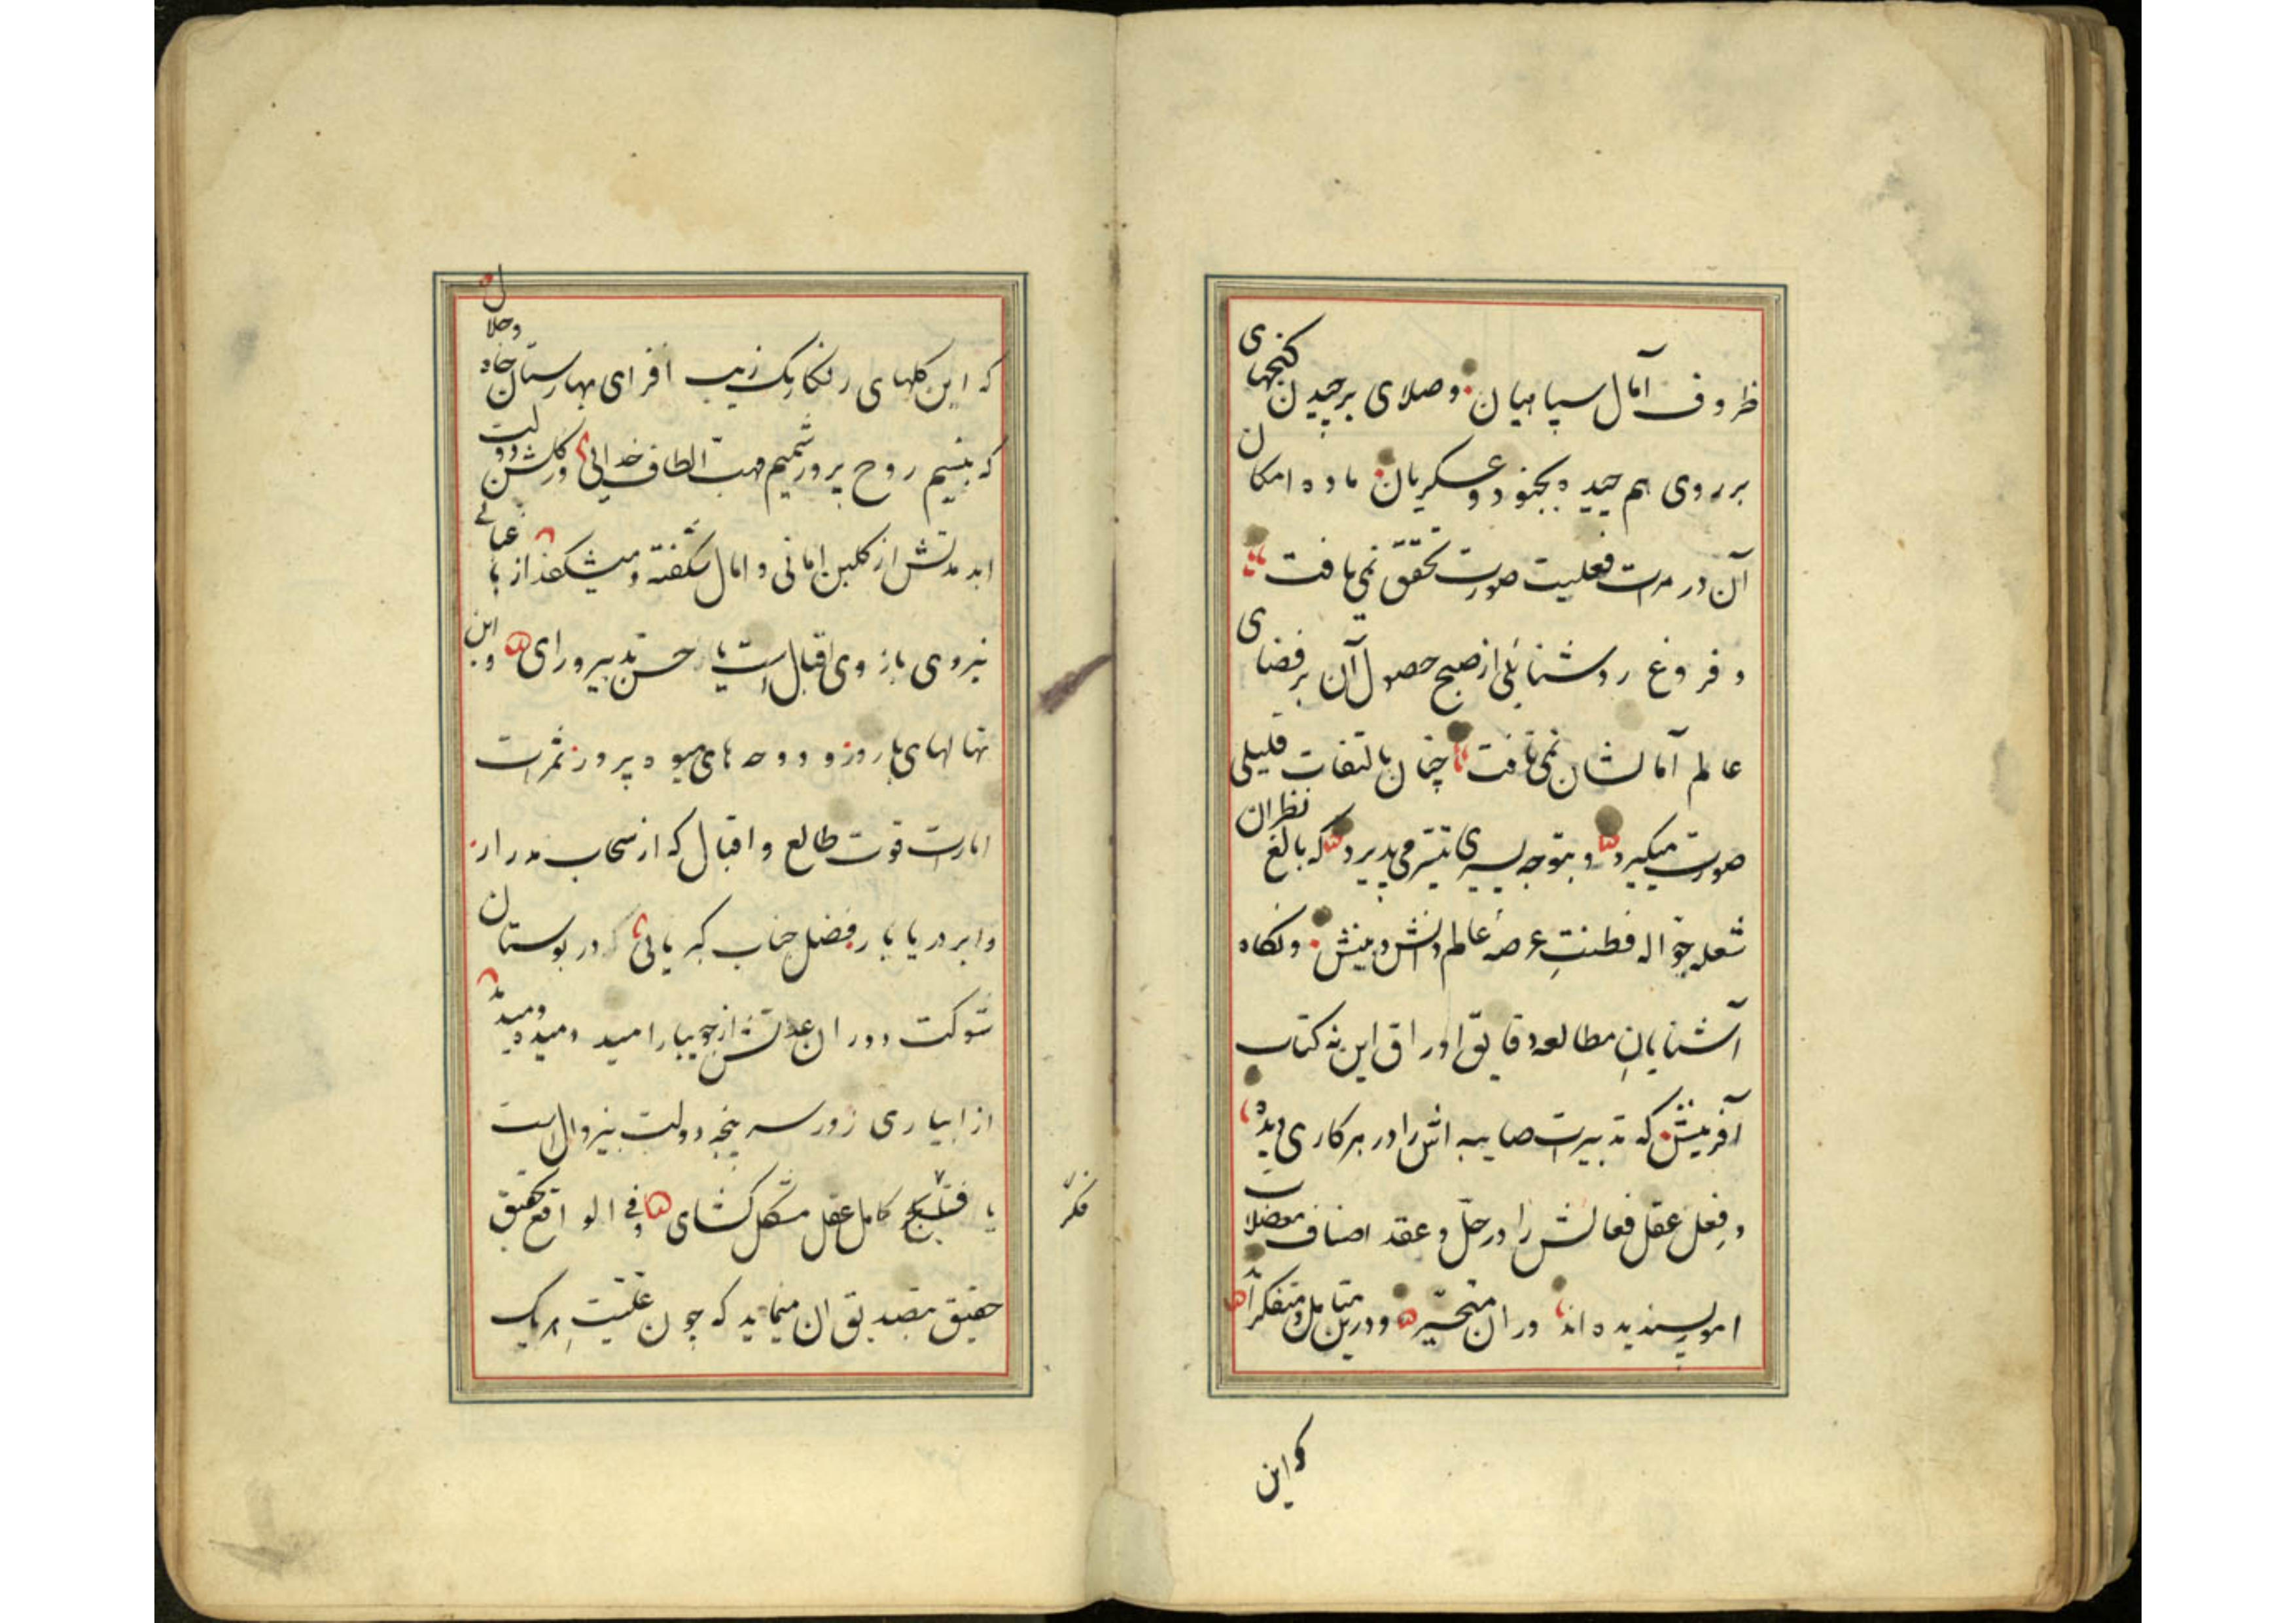 ظروف آمال سپاهیان و صلای برچیدن کنجهای
بر روی هم چیده بجنود و عسکریان ماده امکان
آن در مرات فعلیت صورت تحقق نمی یافت
و فروغ روشنائی از صبح حصول آن بر فضای
عالم آمالشان نمی تافت چنان بالتفات قلیلی
صورت میکیرد و بتوجه یسیری تیسر می پذیرد که بالغ نظران
شعله جواله فطنتِ عرصهٔ عالم دانش و بینش و نکاه
آشنایانِ مطالعه دقایق اوراق این نه کتاب
آفرینش که تدبیرات صایبه اش را در هر کاری دیده
و فعل عقل فعالش را در حل و عقد اصناف معضلات
امور پسندیده اند در ان متحیر و درین متامل و متفکراند
کواین
که این کلهای رنکارنک زیب افزای بهارستان جاه و جلال
که بنسیم روح پرور شمیم مهب الطاف خدائی در کلشن دولت
ابد مدتش از کلبن امانی و امال شکفته و میشکفد از
نیروی بازوی اقبال است یا حسن تدبیر و رای و این
نهالهای بارور و دوحه های میوه پرور ثمرات
امارات قوت طالع و اقبال که از سحاب مدرار
و ابر دریا بار فضل جناب کبریائی در بوستان
شوکت دوران عدالتش از جویبار امید دمیده و میدمد
از ابیاری زور سر پنجه دولت بیزوال است
یا کامل عقل مشکل کشای و فی الواقع تحقیق
فکر
حقیق بتصدیق ان مینماید که چون هر یک